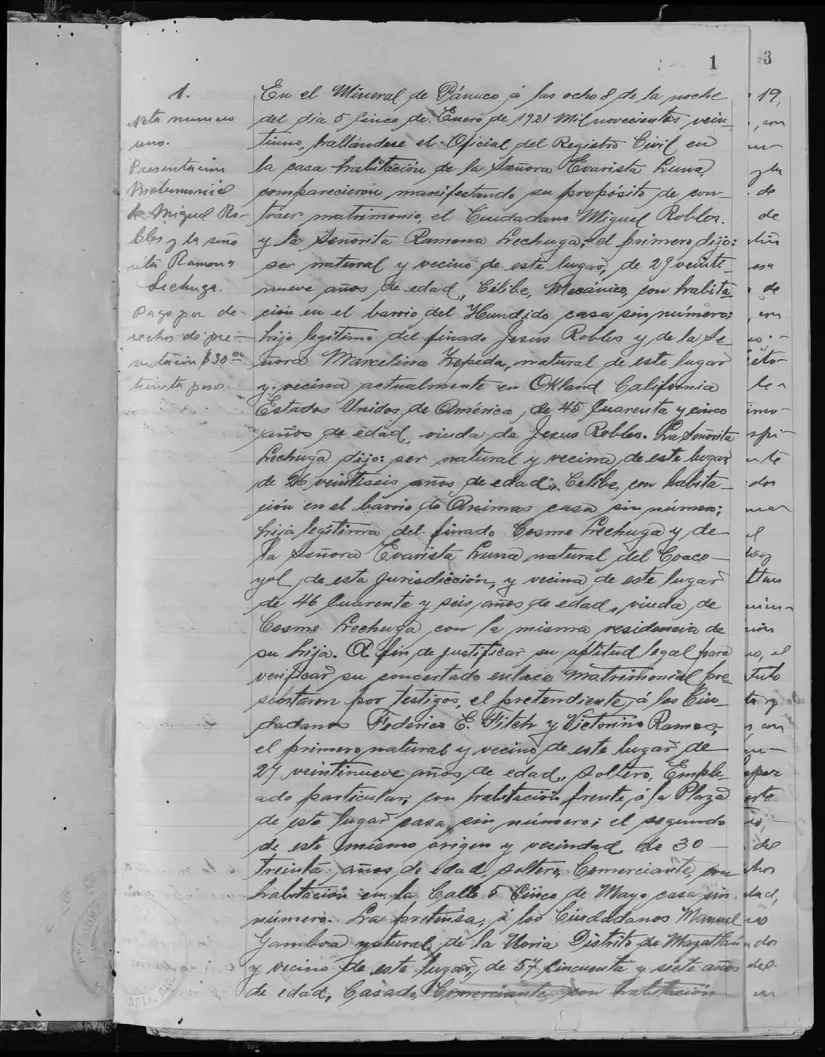 1
3
1.
Acta numero
uno.
Presentacion
Matrimonial
de Miguel Ro-
bles y la seño
rita Ramona
Lechuga.
Pago por de-
rechos de pre-
sentacion $30.00
treinta pesos.
En el Mineral de Pánuco á las ocho 8 de la noche
del dia 5 Cinco de Enero de 1921 Mil novecientos vein-
tiuno, hallándose el Oficial del Registro Civil en
la casa habitación de la Señora Evarista Luna,
comparecieron manifestando su propósito de con-
traer matrimonio, el Ciudadano Miguel Robles.
y la Señorita Ramona Lechuga: el primero dijo:
ser natural y vecino de este lugar, de 29 veinti-
nueve años de edad, Célibe, Mecánico, con habita
ción en el barrio del Hundido casa sin número:
hijo legítimo del finado Jesus Robles y de la Se-
ñora Marcelina Zepeda, natural de este lugar
y vecina actualmente en Okland California
Estados Unidos de América, de 45 Cuarenta y cinco
años de edad, viuda de Jesus Robles. La Señorita
Lechuga dijo: ser natural y vecina de este lugar
de 26 veintiseis años de edad, Célibe, con habita-
ción en el barrio de Animas casa sin número;
hija legítima del finado Cosme Lechuga y de
la Señora Evarista Luna natural del Coaco-
yol, de esta jurisdicción, y vecina de este lugar
de 46 Cuarenta y seis años de edad, viuda de
Cosme Lechuga con la misma residencia de
su hija. A fin de justificar su aptitud legal para
verificar su concertado enlace Matrimonial pre
sentaron por testigos, el pretendiente, á los Ciu-
dadanos Federico E. Fitch y Victorino Ramos,
el primero natural y vecino de este lugar de
27 veintinueve años de edad, soltero, Emple-
ado particular, con habitación frente á la Plaza
de este lugar casa sin número; el segundo
de este mismo origen y vecindad de 30
treinta años de edad, soltero, Comerciante, con
habitación en la Calle 5 Cinco de Mayo casa sin
número. La pretensa, á los Ciudadanos Manuel
Gamboa natural de la Noria Distrito de Mazatlán
y vecino de este lugar, de 57 Cincuenta y siete años
de edad, Casado, Comerciante, con habitación